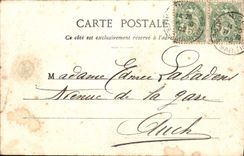 CARTE POSTALE
Ce côté est exclusivement réservé à l'adresse
Madame Edmée Labadens
Avenue de la gare
Auch